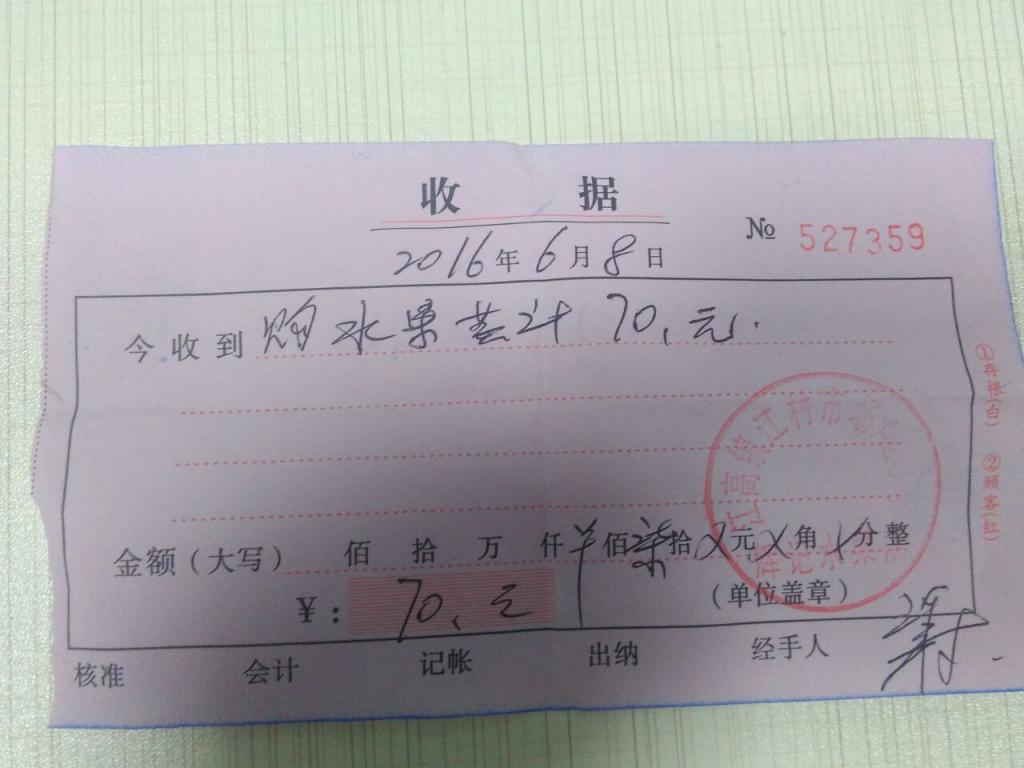 收 据
№ 527359
2016年6月8日
今收到 购水果共计 70.元.
金额（大写） 佰 拾 万 仟 佰柒拾X元X角X分整
￥： 70.元
（单位盖章）
江高镇江村市场
辉记水果
核准 会计 记帐 出纳 经手人
①存根(白) ②顾客(红)